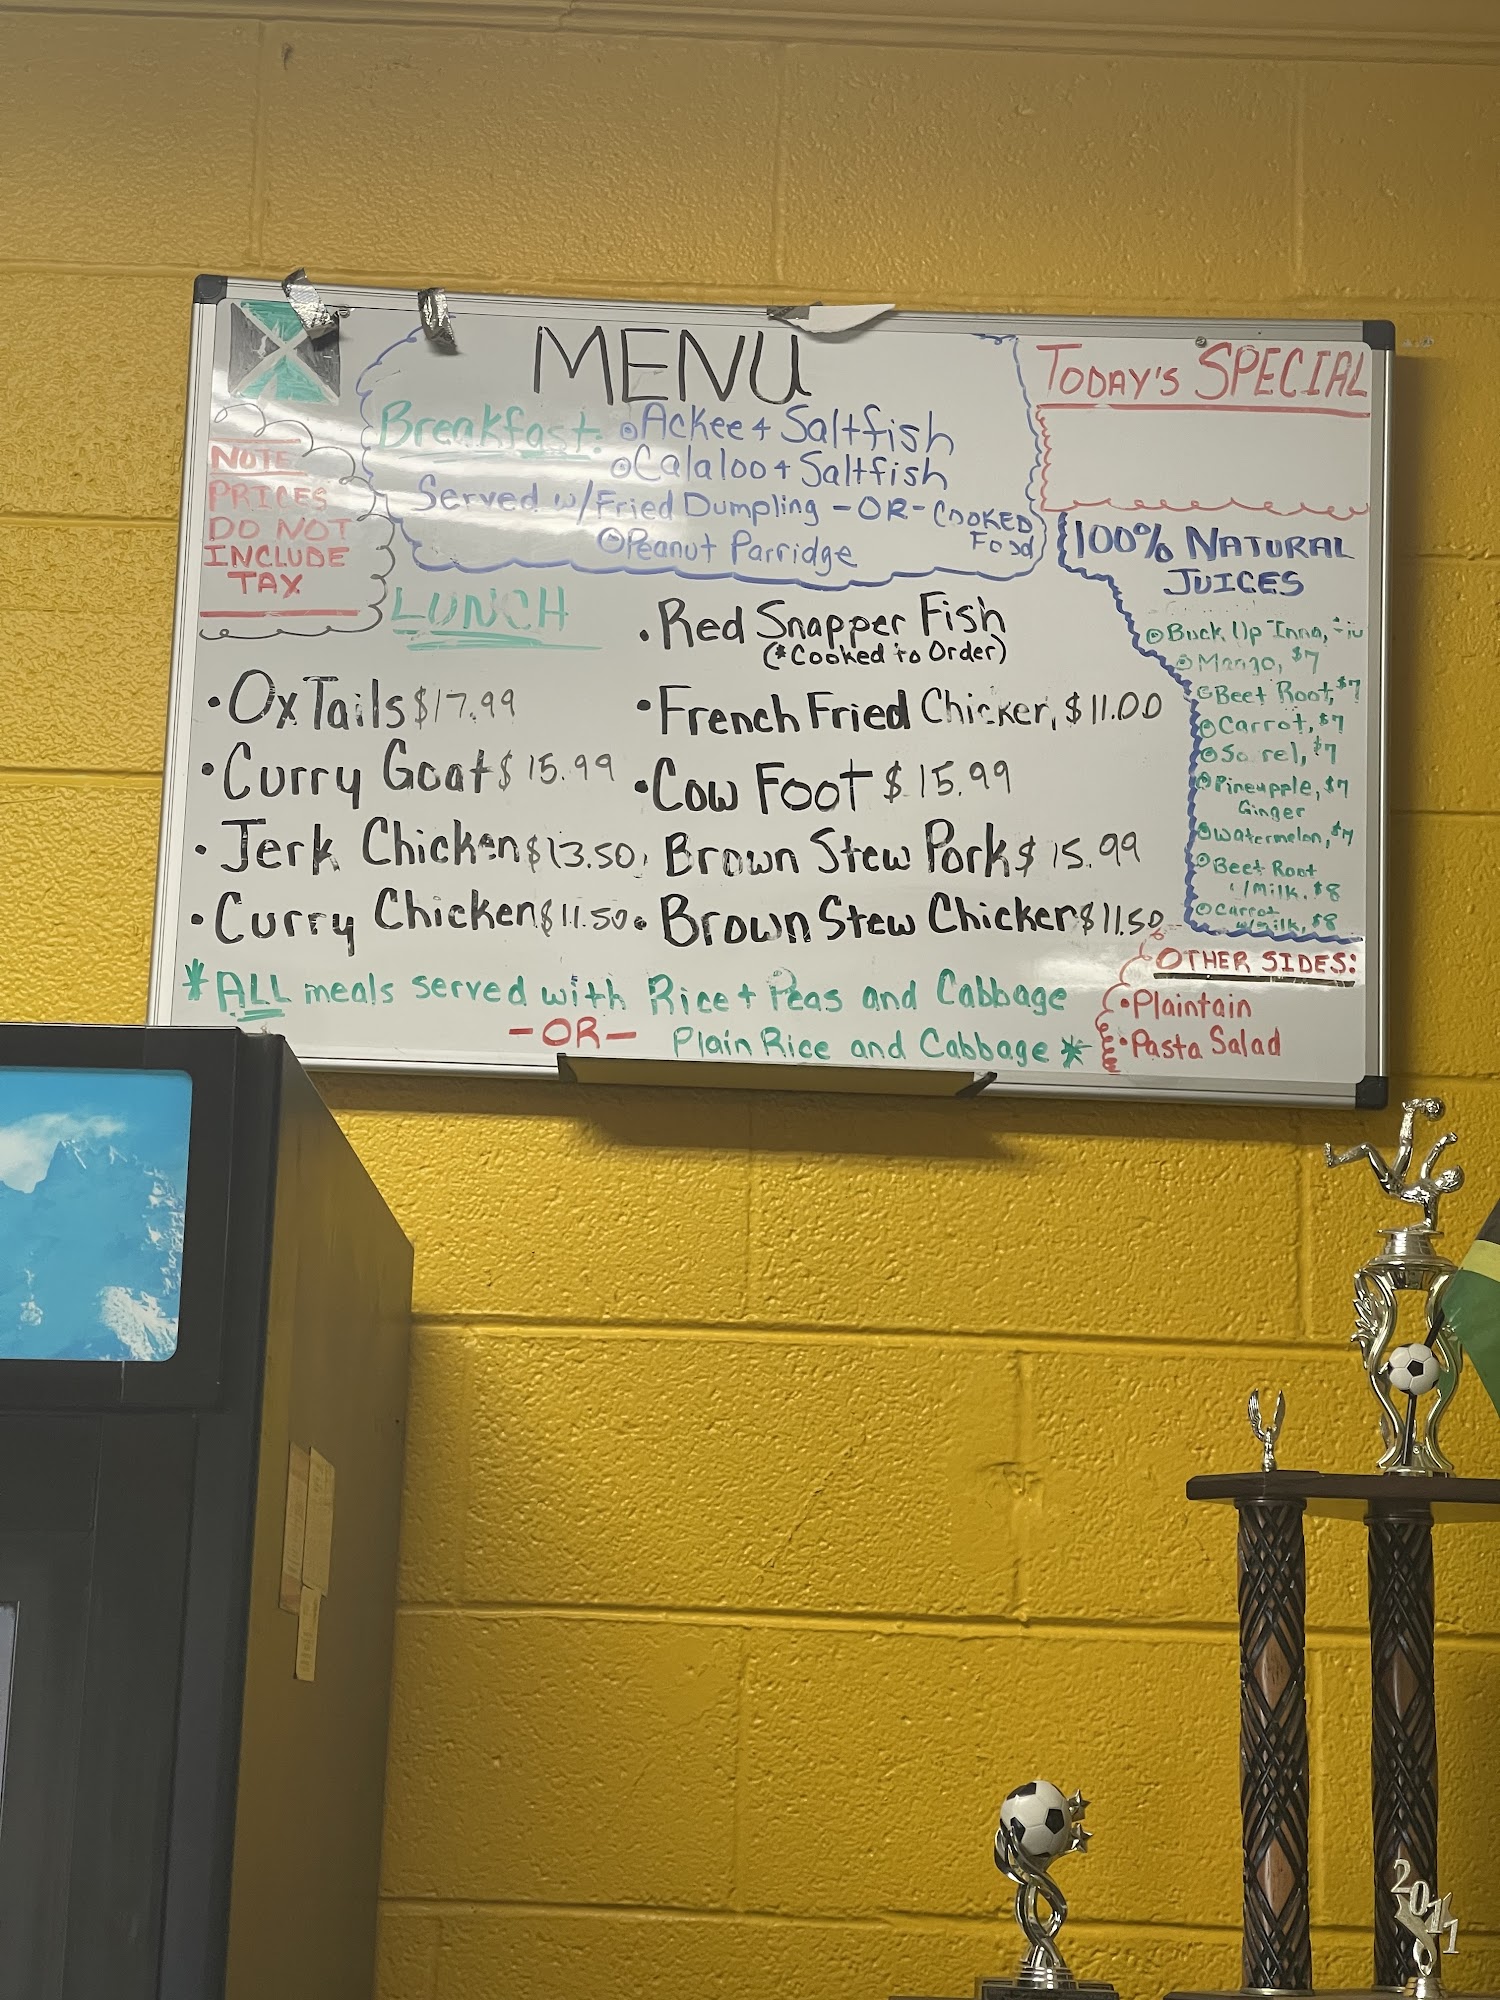 MENU
NOTE
PRICES
DO NOT
INCLUDE
TAX
Breakfast: Ackee + Saltfish
Calaloo + Saltfish
Served w/ Fried Dumpling - OR - COOKED
Food
Peanut Parridge
TODAY'S SPECIAL
100% NATURAL
JUICES
Buck Up Inna,
Mango, $7
Beet Root, $7
Carrot, $7
So rel, $7
Pineapple, $7
Ginger
Watermelon, $7
Beet Root
w/Milk, $8
Carrot
w/milk, $8
LUNCH
• Red Snapper Fish
(*Cooked to Order)
• Ox Tails $17.99
• French Fried Chicken, $11.00
• Curry Goat $15.99
• Cow Foot $15.99
• Jerk Chicken $13.50
Brown Stew Pork $15.99
• Curry Chicken $11.50
• Brown Stew Chicken $11.50
*ALL meals served with Rice + Peas and Cabbage
-OR- Plain Rice and Cabbage*
OTHER SIDES:
• Plaintain
• Pasta Salad
2011